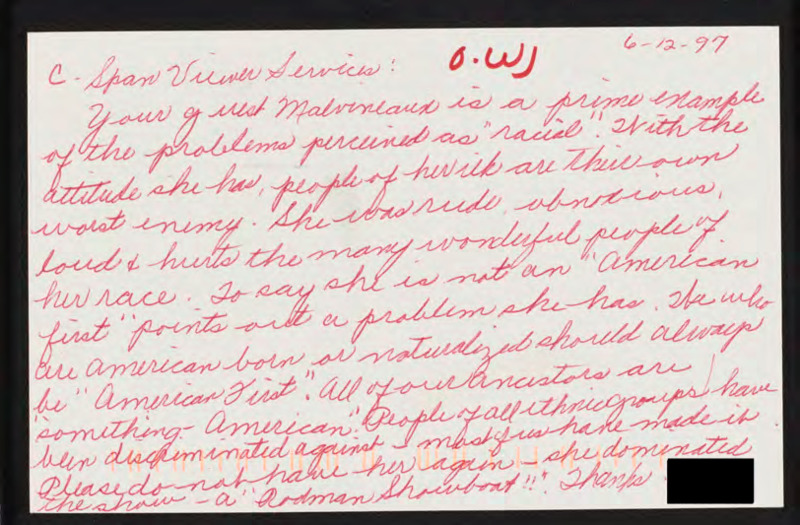 6-12-97
O.WJ
C-Span Viewer Services:
Your guest Malvineaux is a prime example
of the problems perceived as "racial". With the
attitude she has, people of her ilk are their own
worst enemy. She was rude, obnoxious,
loud & hurts the many wonderful people of
her race. To say she is not an "American
first" points out a problem she has. We who
are American born or naturalized should always
be "American First". All of our ancestors are
"something-American". People of all ethnic groups have
been discriminated against - most of us have made it.
Please do not have her again - she dominated
the show - a "Rodman Showboat!!" Thanks